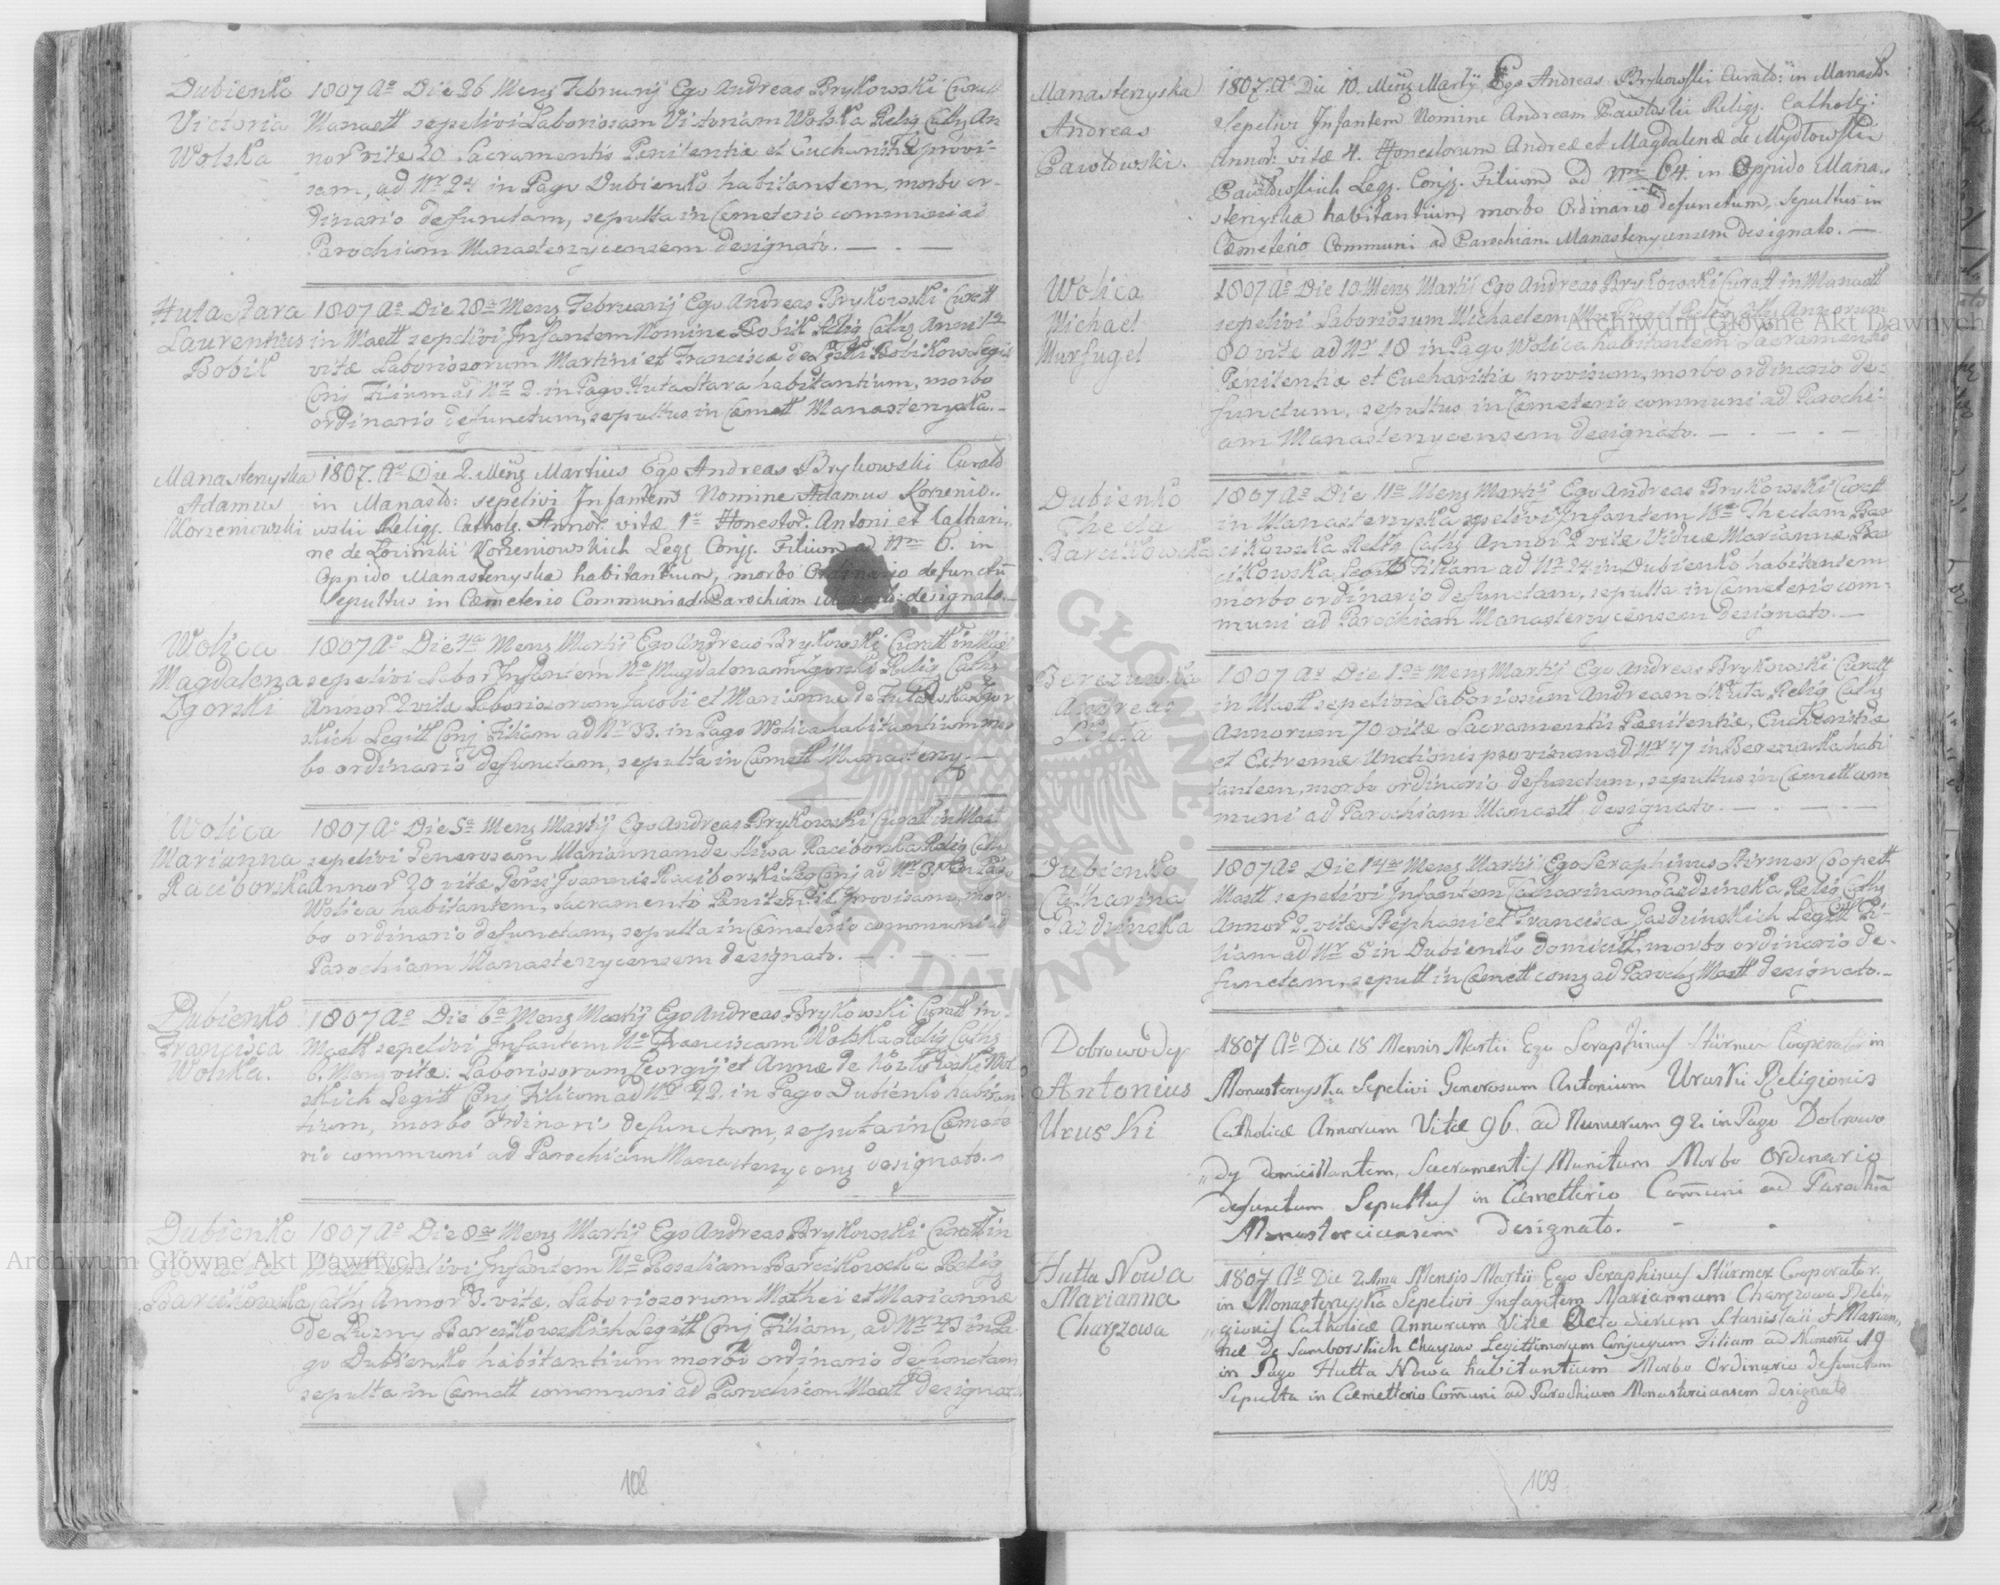 Dubienko
Victoria
Wolska
1807 Ao Die 26 Mens Februarij Ego Andreas Brykowski Curatt
Manastt sepelivi Laboriosam Victoriam Wolska Relig Cathg An
norr vite 20 Sacramentis Penitentiæ et Eucharistiæ provi-
sam, ad Nr 24 in Pago Dubienko habitantem, morbo or-
dinario defunctam, sepulta in Cæmeterio communi ad
Parochiam Manasterzycensem designato.
Huta Stara
Laurentius
Bobil
1807 Ao Die 28a Mens Februarij Ego Andreas Brykowski Curatt
in Mastt sepelivi Infantem Nomine Bobil Relig Cathg
vitæ Laboriosorum Martini et Francisca de Bobikow Legit
Conj Filium ad Nr 2. in Pago Huta Stara habitantium, morbo
ordinario defunctum, sepultus in Cæmett Manasterzyska.
Manasterzyska
Adamus
Korzeniowski
1807. Ao Die 2. Mens Martius Ego Andreas Brykowski Curato
in Manast: sepelivi Infantem Nomine Adamus Korzenio-
wski Religs. Catholg. Annor. vitæ 1o Honestor. Antoni et Cathari-
næ de Łozinski Korzeniowskich Legg Conjg. Filium ad Nrm 6. in
Oppido Manasterzyska habitantium, morbo Ordinario defunctū
Sepultus in Cæmeterio Communi ad Parochiam designato.
Wolica
Magdalena
Zgorski
1807 Ao Die 4a Mens Martij Ego Andreas Brykowski Curatt in
sepelivi Labor Infantem Ne Magdalenam Zgorski Relig Cathg
Annor 2 vitæ Laboriosorum Jacobi et Marianna de
skich Legitt Conj Filiam ad Nr 33. in Pago Wolica habitantium mor
bo ordinario defunctam, sepulta in Cæmett Manasterzy.
Wolica
Marianna
Raciborska
1807 Ao Die 5a Mens Martij Ego Andreas Brykowski Curatt in Mast
sepelivi Generosam Mariannam de Raciborska Relig Cathg
Annor 20 vitæ Joannis Raciborski Leg Conj ad Nr in Pago
Wolica habitantem, sacramento Penitentiæ provisam, mor-
bo ordinario defunctam, sepulta in Cæmeterio communi ad
Parochiam Manasterzycensem designato.
Dubienko
Francisca
Wolska.
1807 Ao Die 6a Mens Martij Ego Andreas Brykowski Curatt in
Mastt sepelivi Infantem Ne Franciscam Wolska Relig Cathg
6. Mens vitæ: Laboriosorum Georgij et Annæ de Wol
skich Legitt Conj Filiam ad Nr 22. in Pago Dubienko habitan
tium, morbo Ordinario defunctam, sepulta in Cæmete
rio communi ad Parochiam Manasterzycens designato.
Dubienko
Rosalia
Barcikowska
1807 Ao Die 8a Mens Martij Ego Andreas Brykowski Curatt in
Mastt sepelivi Infantem Ne Rosaliam Barcikowska Relig
Cathg Annor 3. vitæ, Laboriosorum Mathei et Mariannæ
de Luzny Barcikowskich Legitt Conj Filiam, ad Nr 43 in Pa
go Dubienko habitantium morbo ordinario defunctam
sepulta in Cæmett communi ad Parochiam Mastt designato.
108
Manasterzyska
Andreas
Pawłowski.
1807. Ao Die 10. Mens Martij, Ego Andreas Brykowski Curato: in Manast:
Sepelivi Infantem Nomine Andream Pawłoski Religs. Catholg:
Annor: vitæ 4. Honestorum Andreæ et Magdalenæ de Mydłowskie
Pawłowskich Legg. Conjg. Filium ad Nrm 64. in Oppido Mana-
sterzyska habitantium, morbo Ordinario defunctum, Sepultus in
Cæmeterio Communi ad Parochiam Manasterzycensem designato.
Wolica
Michael
Murfuget
1807 Ao Die 10 Mens Martij Ego Andreas Brykowski Curatt in Manastt
sepelivi Laboriosum Michaelem Relig Cathg Annorum
80 vitæ ad Nr 18 in Pago Wolica habitantem Sacramento
Pænitentiæ et Eucharistiæ provisum, morbo ordinario de-
functum, sepultus in Cæmeterio communi ad Parochi-
am Manasterzycensem designato.
Dubienko
Thecla
Barcikowska
1807 Ao Die 11a Mens Martij Ego Andreas Brykowski Curatt
in Manasterzyska sepelivi Infantem Ne Theclam Bar
cikowska Relig Cathg Annor 2 vitæ Viduæ Mariannæ Bar
cikowska Legitt Filiam ad Nr 24 in Dubienko habitantem
morbo ordinario defunctam, sepulta in Cæmeterio com-
muni ad Parochiam Manasterzycensem designato.
Berezowka
Andreas
Kuta
1807 Ao Die 12a Mens Martij Ego Andreas Brykowski Curatt
in Mastt sepelivi Laboriosum Andream Kuta Relig Cathg
Annorum 70 vitæ Sacramentis Pænitentiæ, Eucharistiæ
et Extremæ Unctionis provisum ad Nr 47 in Berezowka habi
tantem, morbo ordinario defunctum, sepultus in Cæmett com
muni ad Parochiam Manastt designato.
Dubienko
Catharina
Pazdzinska
1807 Ao Die 14a Mens Martij Ego Seraphinus Stürmer Coopett
Mastt sepelivi Infantem Catharinam Pazdzinska Relig Cathg
Annor 2. vitæ Stephani et Francisca Pazdzinskich Legitt Fi-
liam ad Nr 5 in Dubienko domicilt, morbo ordinario de-
functam, sepult in Cæmett comg ad Parochg Mastt designato.
Dobrowody
Antonius
Uruski
1807 Ao Die 18 Mensis Martii Ego Seraphinus Stürmer Cooperator in
Monasterzyska Sepelivi Generosum Antonium Uruski Religionis
Catholicæ Annorum Vitæ 96. ad Numerum 92. in Pago Dobrowo
dy domicillantem, Sacramentis Munitum Morbo Ordinario
defunctum Sepultus in Cæmetterio Com̄uni ad Parochia
Monasterciensem designato.
Hutta Nowa
Marianna
Chargowa
1807 Ao Die 21ma Mensis Martii Ego Seraphinus Stürmer Cooperator.
in Monasterzyska Sepelivi Infantem Mariannam Chargowa Reli-
gionis Catholicæ Annorum Vitæ Octo dierum Stanislaii et Marian-
næ de Samborskich Chargow Legittimorum Conjugum Filiam ad Numerū 19
in Pago Hutta Nowa habitantium Morbo Ordinario defunctam
Sepulta in Cæmetterio Com̄uni ad Parochiam Monasterciensem designato
109
Archiwum Główne Akt Dawnych
Archiwum Główne Akt Dawnych